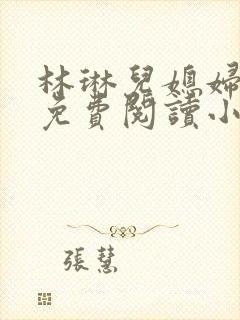 林琳兒媳婦
免費閱讀小
張慧